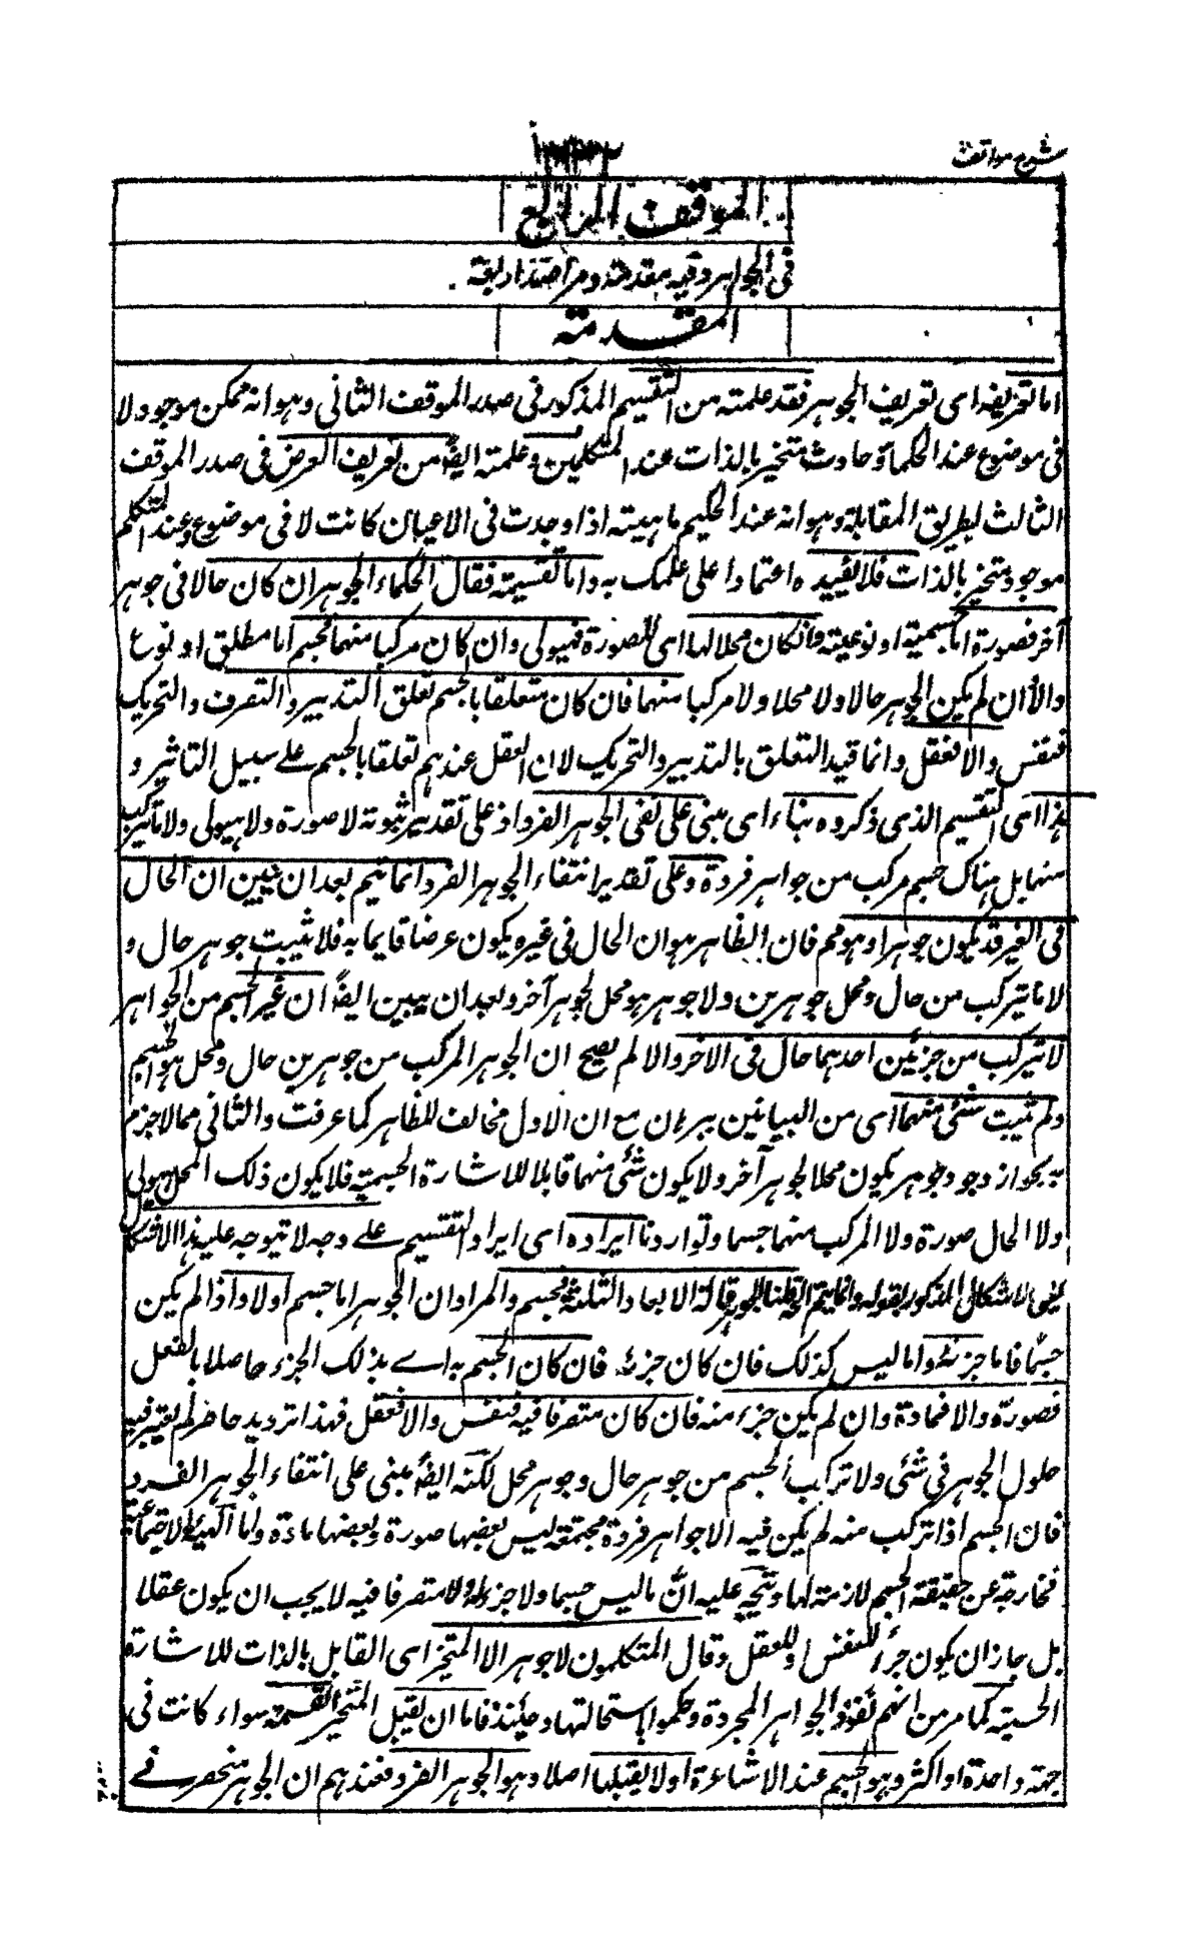 شرح مواقف
الموقف الرابع
فى الجواهر وفيه مقدمة ومراصد اربعة
المقدمة
اما تعريفه اى تعريف الجوهر فقد علمته من التقسيم المذكور فى صدر الموقف الثانى وهو انه ممكن موجود لا
فى موضوع عند الحكماء وحادث متحيز بالذات عند المتكلمين وعلمته ايضًا من تعريف العرض فى صدر الموقف
الثالث بطريق المقابلة وهو انه عند الحكيم ماهيته اذا وجدت فى الاعيان كانت لا فى موضوع وعند المتكلم
موجود متحيز بالذات فلا نعيده اعتمادا على علمك به واما تقسيمه فقال الحكماء الجوهر ان كان حالا فى جوهر
آخر فصورة اما جسمية او نوعية وان كان محلا لها اى للصورة فهيولى وان كان مركبا منهما فجسم اما مطلق او نوع
والا ان لم يكن الجوهر حالا ولا محلا ولا مركبا منهما فان كان متعلقا بالجسم تعلق التدبير والتصرف والتحريك
فنفس والا فعقل وانما قيد التعلق بالتدبير والتحريك لان للعقل عندهم تعلقا بالجسم على سبيل التاثير و
هذا اى التقسيم الذى ذكروه بناء اى مبنى على نفى الجوهر الفرد اذ على تقدير ثبوته لا صورة ولا هيولى ولا ما يتركب
منهما بل هناك جسم مركب من جواهر فردة وعلى تقدير انتفاء الجوهر الفرد انما يتم بعد ان يبين ان الحال
فى الغير قد يكون جوهرا وهو مم فان الظاهر هو ان الحال فى غيره يكون عرضا قايما به فلا يثبت جوهر حال و
لا ما يتركب من حال ومحل جوهرين ولا جوهر هو محل لجوهر آخر وبعد ان يبين ايضًا ان غير الجسم من الجواهر
لا يتركب من جزئين احدهما حال فى الاخر والا لم يصح ان الجوهر المركب من جوهرين حال ومحل هو الجسم
ولم يثبت شئ منهما اى من البيانين ببرهان مع ان الاول مخالف للظاهر كما عرفت والثانى مما لا جزم
به بجواز وجود جوهر يكون محلا لجوهر آخر ولا يكون شئ منهما قابلا للاشارة الحسية فلا يكون ذلك المحل هيولى
ولا الحال صورة ولا المركب منهما جسما ولو اردنا ايراده اى ايراد التقسيم على وجه لا يتوجه عليه هذا الاشكال
يعنى الاشكال المذكور بقوله وانما يتم قلنا الجوهر قالة الابعاد الثلثة فجسم والمراد ان الجوهر اما جسم اولا واذا لم يكن
جسمًا فاما جزئه واما ليس كذلك فان كان جزئه فان كان الجسم به اى بذلك الجزء حاصلا بالفعل
فصورة والا فمادة وان لم يكن جزء منه فان كان متصرفا فيه فنفس والا فعقل فهذا ترديد حاصر لم يعتبر فيه
حلول الجوهر فى شئ ولا تركب الجسم من جوهر حال وجوهر محل لكنه ايضًا مبنى على انتفاء الجوهر الفرد
فان الجسم اذا تركب منه لم يكن فيه الا جواهر فردة مجتمعة ليس بعضها صورة وبعضها مادة واما الهيئة الاجتماعية
فخارجة عن حقيقة الجسم لازمة لها ويتجه عليه ان ما ليس جسما ولا جزءه ولا متصرفا فيه لا يجب ان يكون عقلا
بل جاز ان يكون جزءًا للنفس او للعقل وقال المتكلمون لا جوهر الا المتحيز اى القابل بالذات للاشارة
الحسية كما مر من انهم نفوا الجواهر المجردة وحكموا باستحالتها وحينئذ فاما ان يقبل المتحيز القسمة سواء كانت فى
جهة واحدة او اكثر وهو الجسم عند الاشاعرة او لا يقبلها اصلا وهو الجوهر الفرد فعندهم ان الجوهر منحصر فى